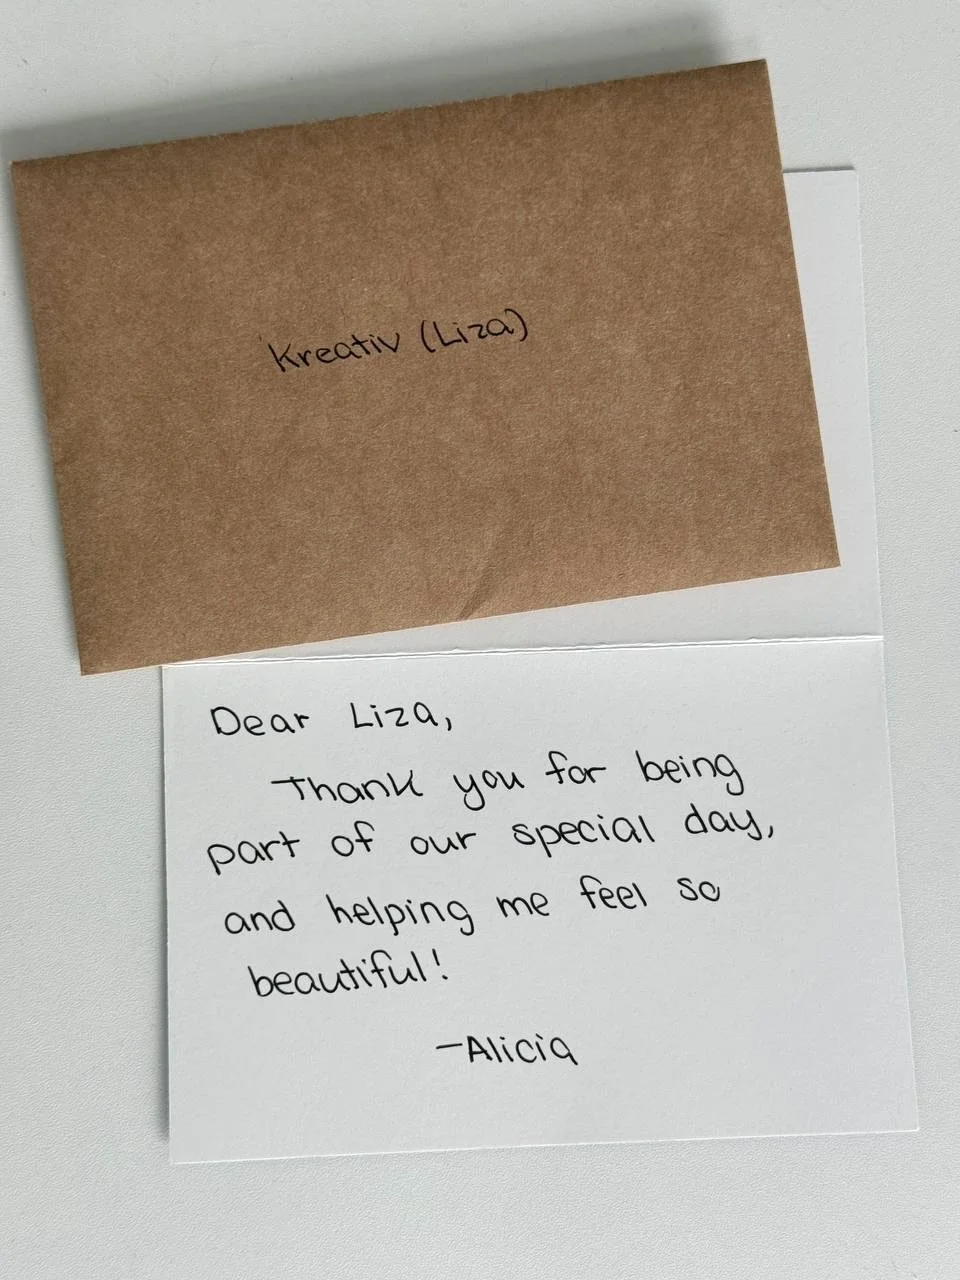 Kreativ (Liza)
Dear Liza,
Thank you for being
part of our special day,
and helping me feel so
beautiful!
-Alicia